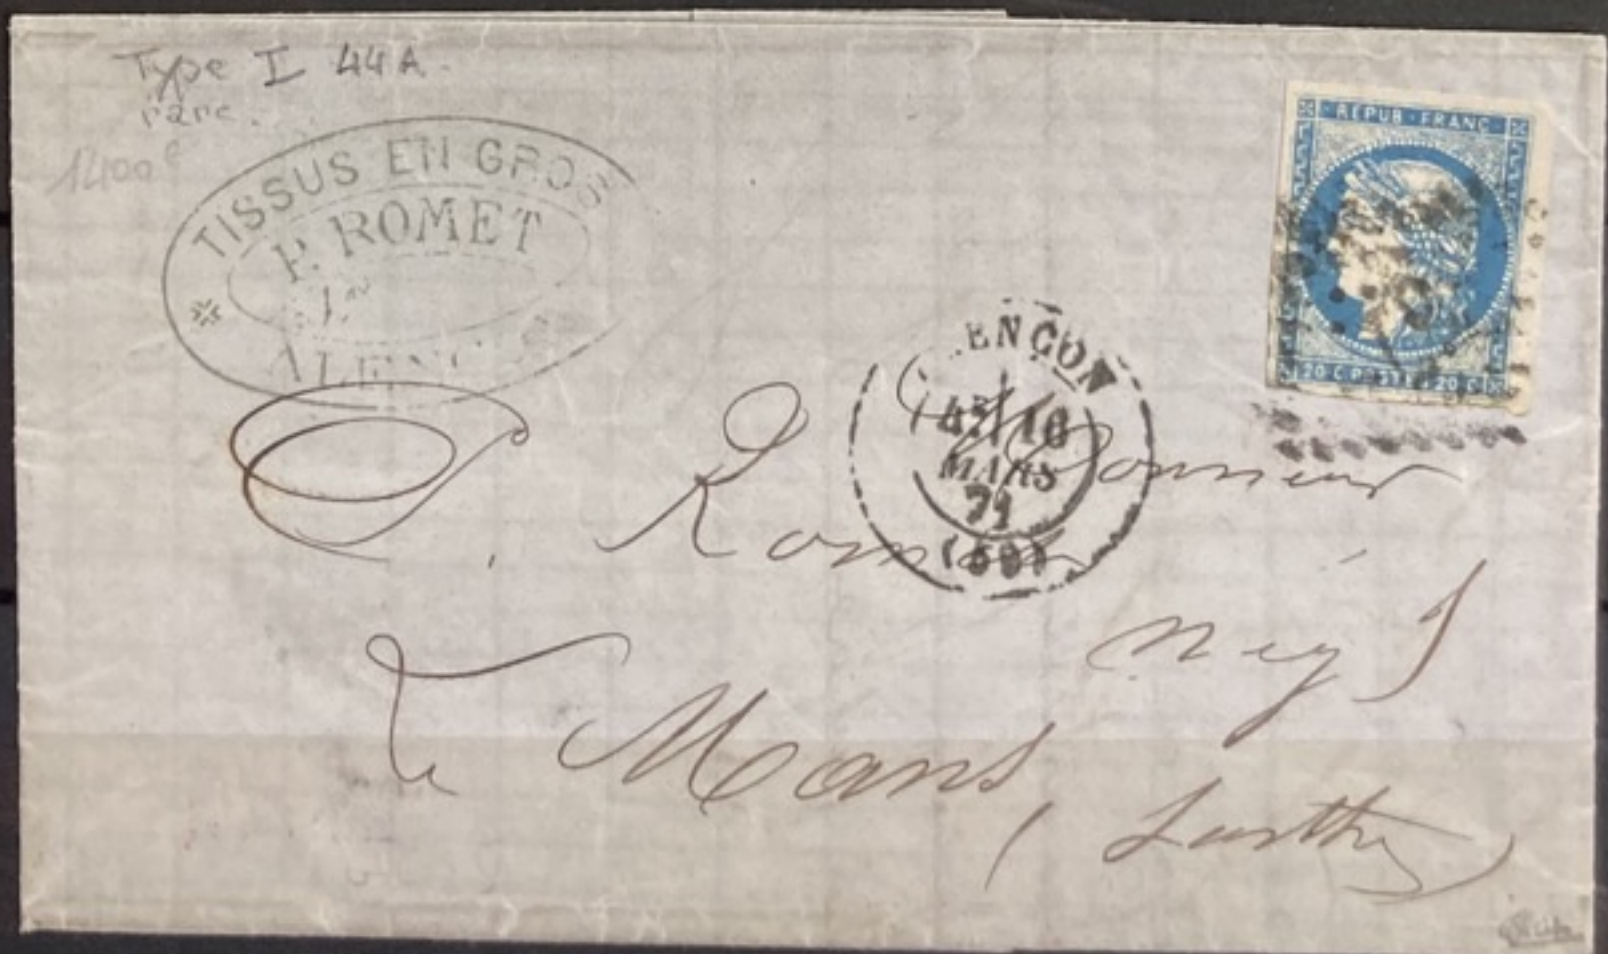 Type I 44A.
rare.
1400 e
TISSUS EN GROS
P. ROMET
ALENÇO
REPUB·FRANC
20 C POSTE 20 C
ENÇON
4E 16
MARS
71
(59)
Monsieur
P. Romet
Nég t
Le Mans,
(Sarthe)